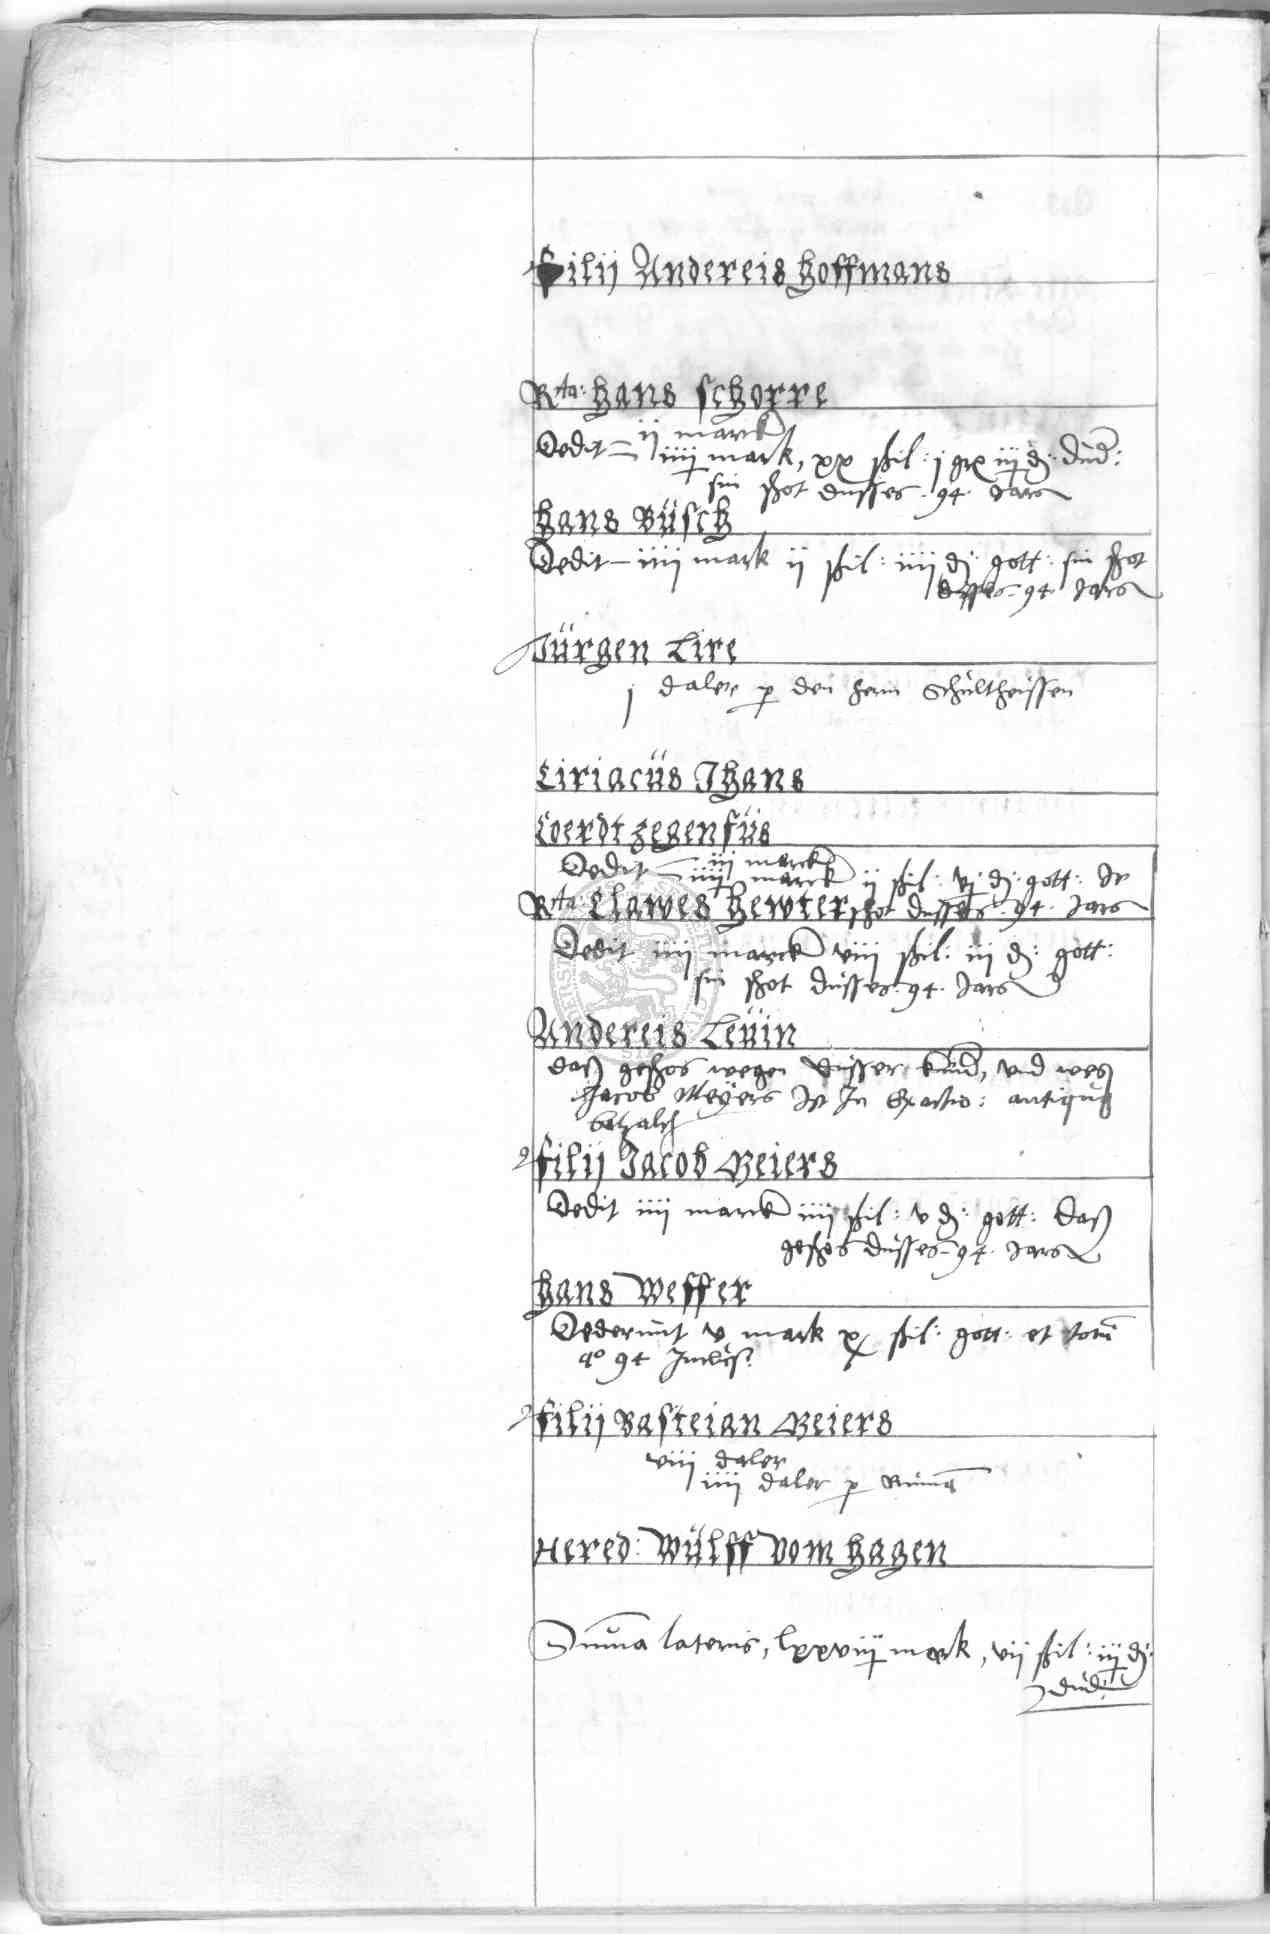 Filij Andereis Hoffmans
Rta: Hans Schorre
ij marck
Dedit iiij mark, xx ßil: j gr iij d:
sin schot dusses 94 Jars
Hans Büsch
Dedit iiij mark ij ßil: iiij d: gott: sin schot
dusses 94 Jars
Jürgen Lire
j daler p den hern Schültheissen
Ciriacüs Jhans
Coerdt Zegenfüs
iij marck
Dedit iiij marck ij ßil: vj d: gott:
Rta: Clawes Hewter schot dusses 94 Jars
Dedit iiij marck viij ßil: iij d: gott:
sin schot dusses 94 Jars
Andereis Levin
daß geschos wegen dusser vnd wes
Jacob Meyers In antiqua
betzalt
Filij Jacob Beiers
Dedit iiij marck iiij ßil: v d: gott: daß
geschos dusses 94 Jars
Hans Wesser
Dederunt v mark x ßil: gott: et
ao 94
Filij Basteian Beiers
viij daler
iiij daler p
Hered: Wülff vom Hagen
Summa lateris, lxxviij mark, vij ßil: iij d: